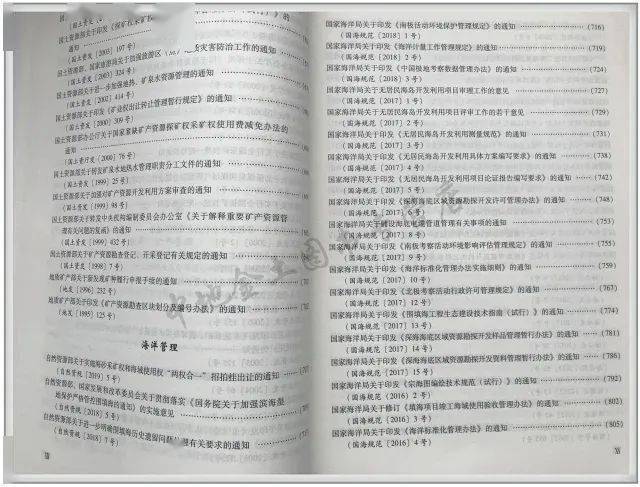 国土资源部关于印发《探矿权采矿权
通知
(国土资发〔2003〕197号)
国土资源部、国家旅游局关于加强旅游区
地质灾害防治工作的通知
(国土资发〔2003〕324号)
国土资源部关于进一步加强地热、矿泉水资源管理的通知
(国土资发〔2002〕414号)
国土资源部关于印发《矿业权出让转让管理暂行规定》的通知
(国土资发〔2000〕309号)
国土资源部办公厅关于国家紧缺矿产资源探矿权采矿权使用费减免办法的
通知
(国土资厅发〔2000〕76号)
国土资源部关于转发矿泉水地热水管理职责分工文件的通知
(国土资发〔1999〕25号)
国土资源部关于加强对矿产资源开发利用方案审查的通知
(国土资发〔1999〕98号)
国土资源部关于转发中央机构编制委员会办公室《关于解释重要矿产资源管
理有关问题的复函》的通知
(国土资发〔1999〕432号)
国土资源部关于矿产资源勘查登记、开采登记有关规定的通知
(国土资发〔1998〕7号)
(地发〔1996〕232号)
地质矿产部关于印发《矿产资源勘查区块划分及编号办法》的通知
(地发〔1995〕125号)
海洋管理
自然资源部关于实施海砂采矿权和海域使用权“两权合一”招拍挂出让的通知
(自然资规〔2019〕5号)
自然资源部、国家发展和改革委员会关于贯彻落实《国务院关于加强滨海湿
地保护严格管控围填海的通知》的实施意见
(自然资规〔2018〕5号)
自然资源部关于进一步明确围填海历史遗留问题处理有关要求的通知
(自然资规〔2018〕7号)
国家海洋局关于印发《南极活动环境保护管理规定》的通知 (716)
(国海规范〔2018〕1号)
国家海洋局关于印发《海洋计量工作管理规定》的通知 (719)
(国海规范〔2018〕2号)
国家海洋局关于印发《中国极地考察数据管理办法》的通知 (724)
(国海规范〔2018〕3号)
国家海洋局关于无居民海岛开发利用项目审理工作的意见 (727)
(国海规范〔2017〕1号)
国家海洋局关于无居民海岛开发利用项目评审工作的若干意见 (729)
(国海规范〔2017〕2号)
国家海洋局关于印发《无居民海岛开发利用测量规范》的通知 (731)
(国海规范〔2017〕3号)
国家海洋局关于印发《无居民海岛开发利用具体方案编写要求》的通知 (738)
(国海规范〔2017〕4号)
国家海洋局关于印发《无居民海岛开发利用项目论证报告编写要求》的通知 (742)
(国海规范〔2017〕5号)
国家海洋局关于印发《深海海底区域资源勘探开发许可管理办法》的通知 (748)
(国海规范〔2017〕6号)
国家海洋局关于铺设海底电缆管道管理有关事项的通知 (753)
(国海规范〔2017〕8号)
国家海洋局关于印发《南极考察活动环境影响评估管理规定》的通知 (755)
(国海规范〔2017〕9号)
国家海洋局关于印发《海洋标准化管理办法实施细则》的通知 (759)
(国海规范〔2017〕10号)
国家海洋局关于印发《北极考察活动行政许可管理规定》的通知 (767)
(国海规范〔2017〕12号)
国家海洋局关于印发《围填海工程生态建设技术指南（试行）》的通知 (774)
(国海规范〔2017〕13号)
国家海洋局关于印发《深海海底区域资源勘探开发样品管理暂行办法》的通知 (781)
(国海规范〔2017〕14号)
国家海洋局关于印发《深海海底区域资源勘探开发资料管理暂行办法》的通知 (786)
(国海规范〔2017〕15号)
国家海洋局关于印发《宗海图编绘技术规范（试行）》的通知 (792)
(国海规范〔2016〕2号)
国家海洋局关于修订《填海项目竣工海域使用验收管理办法》的通知 (802)
(国海规范〔2016〕3号)
国家海洋局关于印发《海洋标准化管理办法》的通知 (805)
(国海规范〔2016〕4号)
中地金土图书店